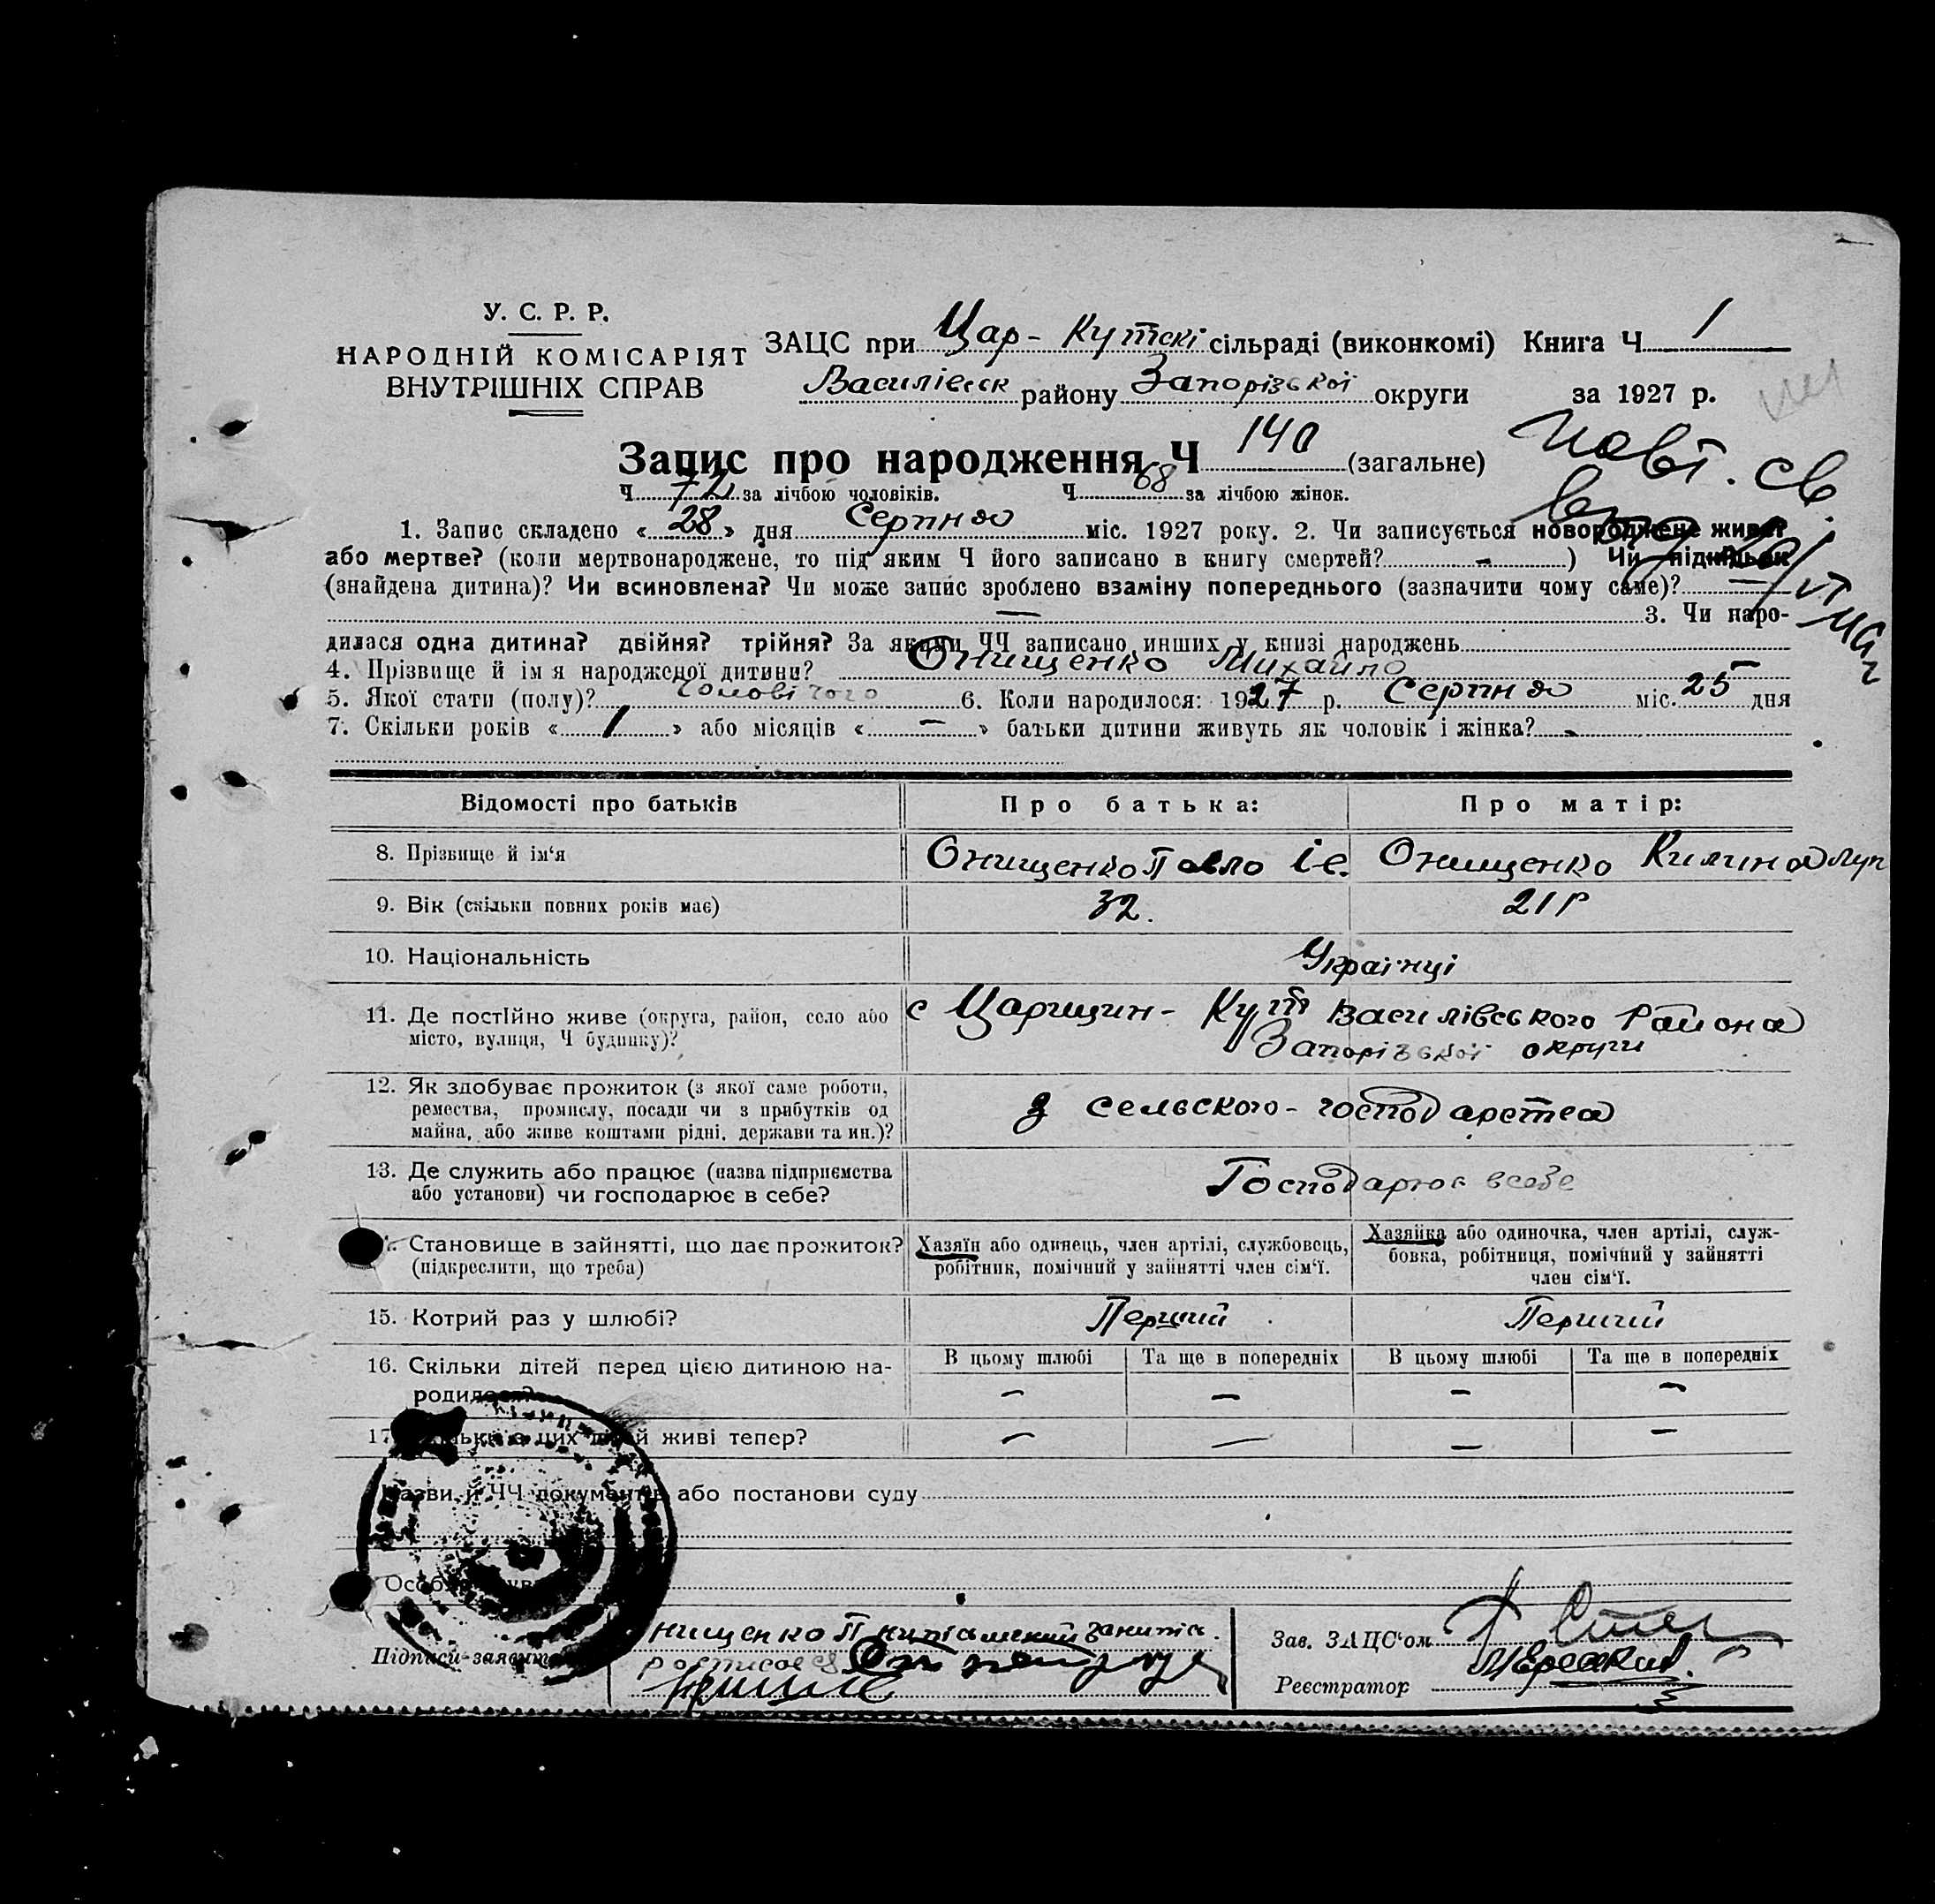 У. С. Р. Р.
НАРОДНІЙ КОМІСАРІЯТ
ВНУТРІШНІХ СПРАВ
ЗАЦС при Цар-Кутскі сільраді (виконкомі) Книга Ч 1
Василівск району Запорізької округи за 1927 р.
Запис про народження Ч 140 (загальне)
Повт. св.
Ч 72 за лічбою чоловіків. Ч 68 за лічбою жінок.
1. Запис складено « 28 » дня Серпня міс. 1927 року. 2. Чи записується новороджене живе?
або мертве? (коли мертвонароджене, то під яким Ч його записано в книгу смертей? - ) Чи підкидьок
(знайдена дитина)? Чи всиновлена? Чи може запис зроблено взаміну попереднього (зазначити чому саме)? —
— 3. Чи наро-
дилася одна дитина? двійня? трійня? За якими ЧЧ записано инших у книзі народжень
4. Прізвище й ім я народженої дитини? Онищенко Михайло
5. Якої стати (полу)? чоловічого 6. Коли народилося: 1927 р. Серпня міс. 25 дня
7. Скільки років « 1 » або місяців « - » батьки дитини живуть як чоловік і жінка? -
Відомості про батьків Про батька: Про матір:
8. Прізвище й ім'я Онищенко Павло Іє. Онищенко Килина Луп
9. Вік (скільки повних років має) 32. 21 р
10. Національність Українці
11. Де постійно живе (округа, район, село або
місто, вулиця, Ч будинку)?
с Царицин-Кут Василівського Района
Запорізької округи
12. Як здобуває прожиток (з якої саме роботи,
ремества, промислу, посади чи з прибутків од
майна, або живе коштами рідні, держави та ин.)?
з сельского-господарства
13. Де служить або працює (назва підприємства
або установи) чи господарює в себе?
Господарює всебе
Становище в зайнятті, що дає прожиток?
(підкреслити, що треба)
Хазяїн або одинець, член артілі, службовець,
робітник, помічний у зайнятті член сім'ї.
Хазяйка або одиночка, член артілі, служ-
бовка, робітниця, помічний у зайнятті
член сім'ї.
15. Котрий раз у шлюбі? Перший Перший
16. Скільки дітей перед цією дитиною на-
родилося?
В цьому шлюбі Та ще в попередніх В цьому шлюбі Та ще в попередніх
— — — —
17. Скільки з цих дітей живі тепер? — — — —
Назви й ЧЧ документів або постанови суду
Підписи заявит
нищенко П
росписався
Зав. ЗАЦС'ом
Реєстратор